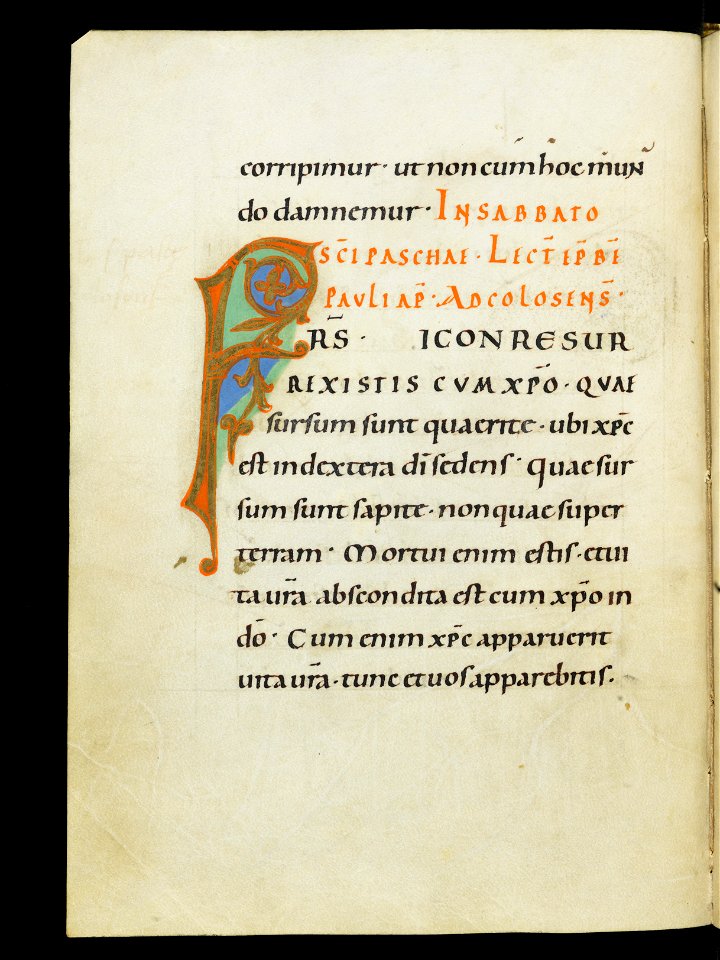 corripimur · ut non cum hoc mun̄
do damnemur · IN SABBATO
SC̄I PASCHAE · LECT̄ EP̄ BĒI
PAULI AP̄ · AD COLOSENS̄ ·
FRS̄ · SI CONRESUR
REXISTIS CUM XP̄O · QUAE
sursum sunt quaerite · ubi xp̄c
est in dextera dī sedens · Quae sur
sum sunt sapite · non quae super
terram · Mortui enim estis · et ui
ta ur̄a abscondita est cum xp̄o in
dō · Cum enim xp̄c apparuerit
uita ur̄a · tunc et uos apparebitis ·